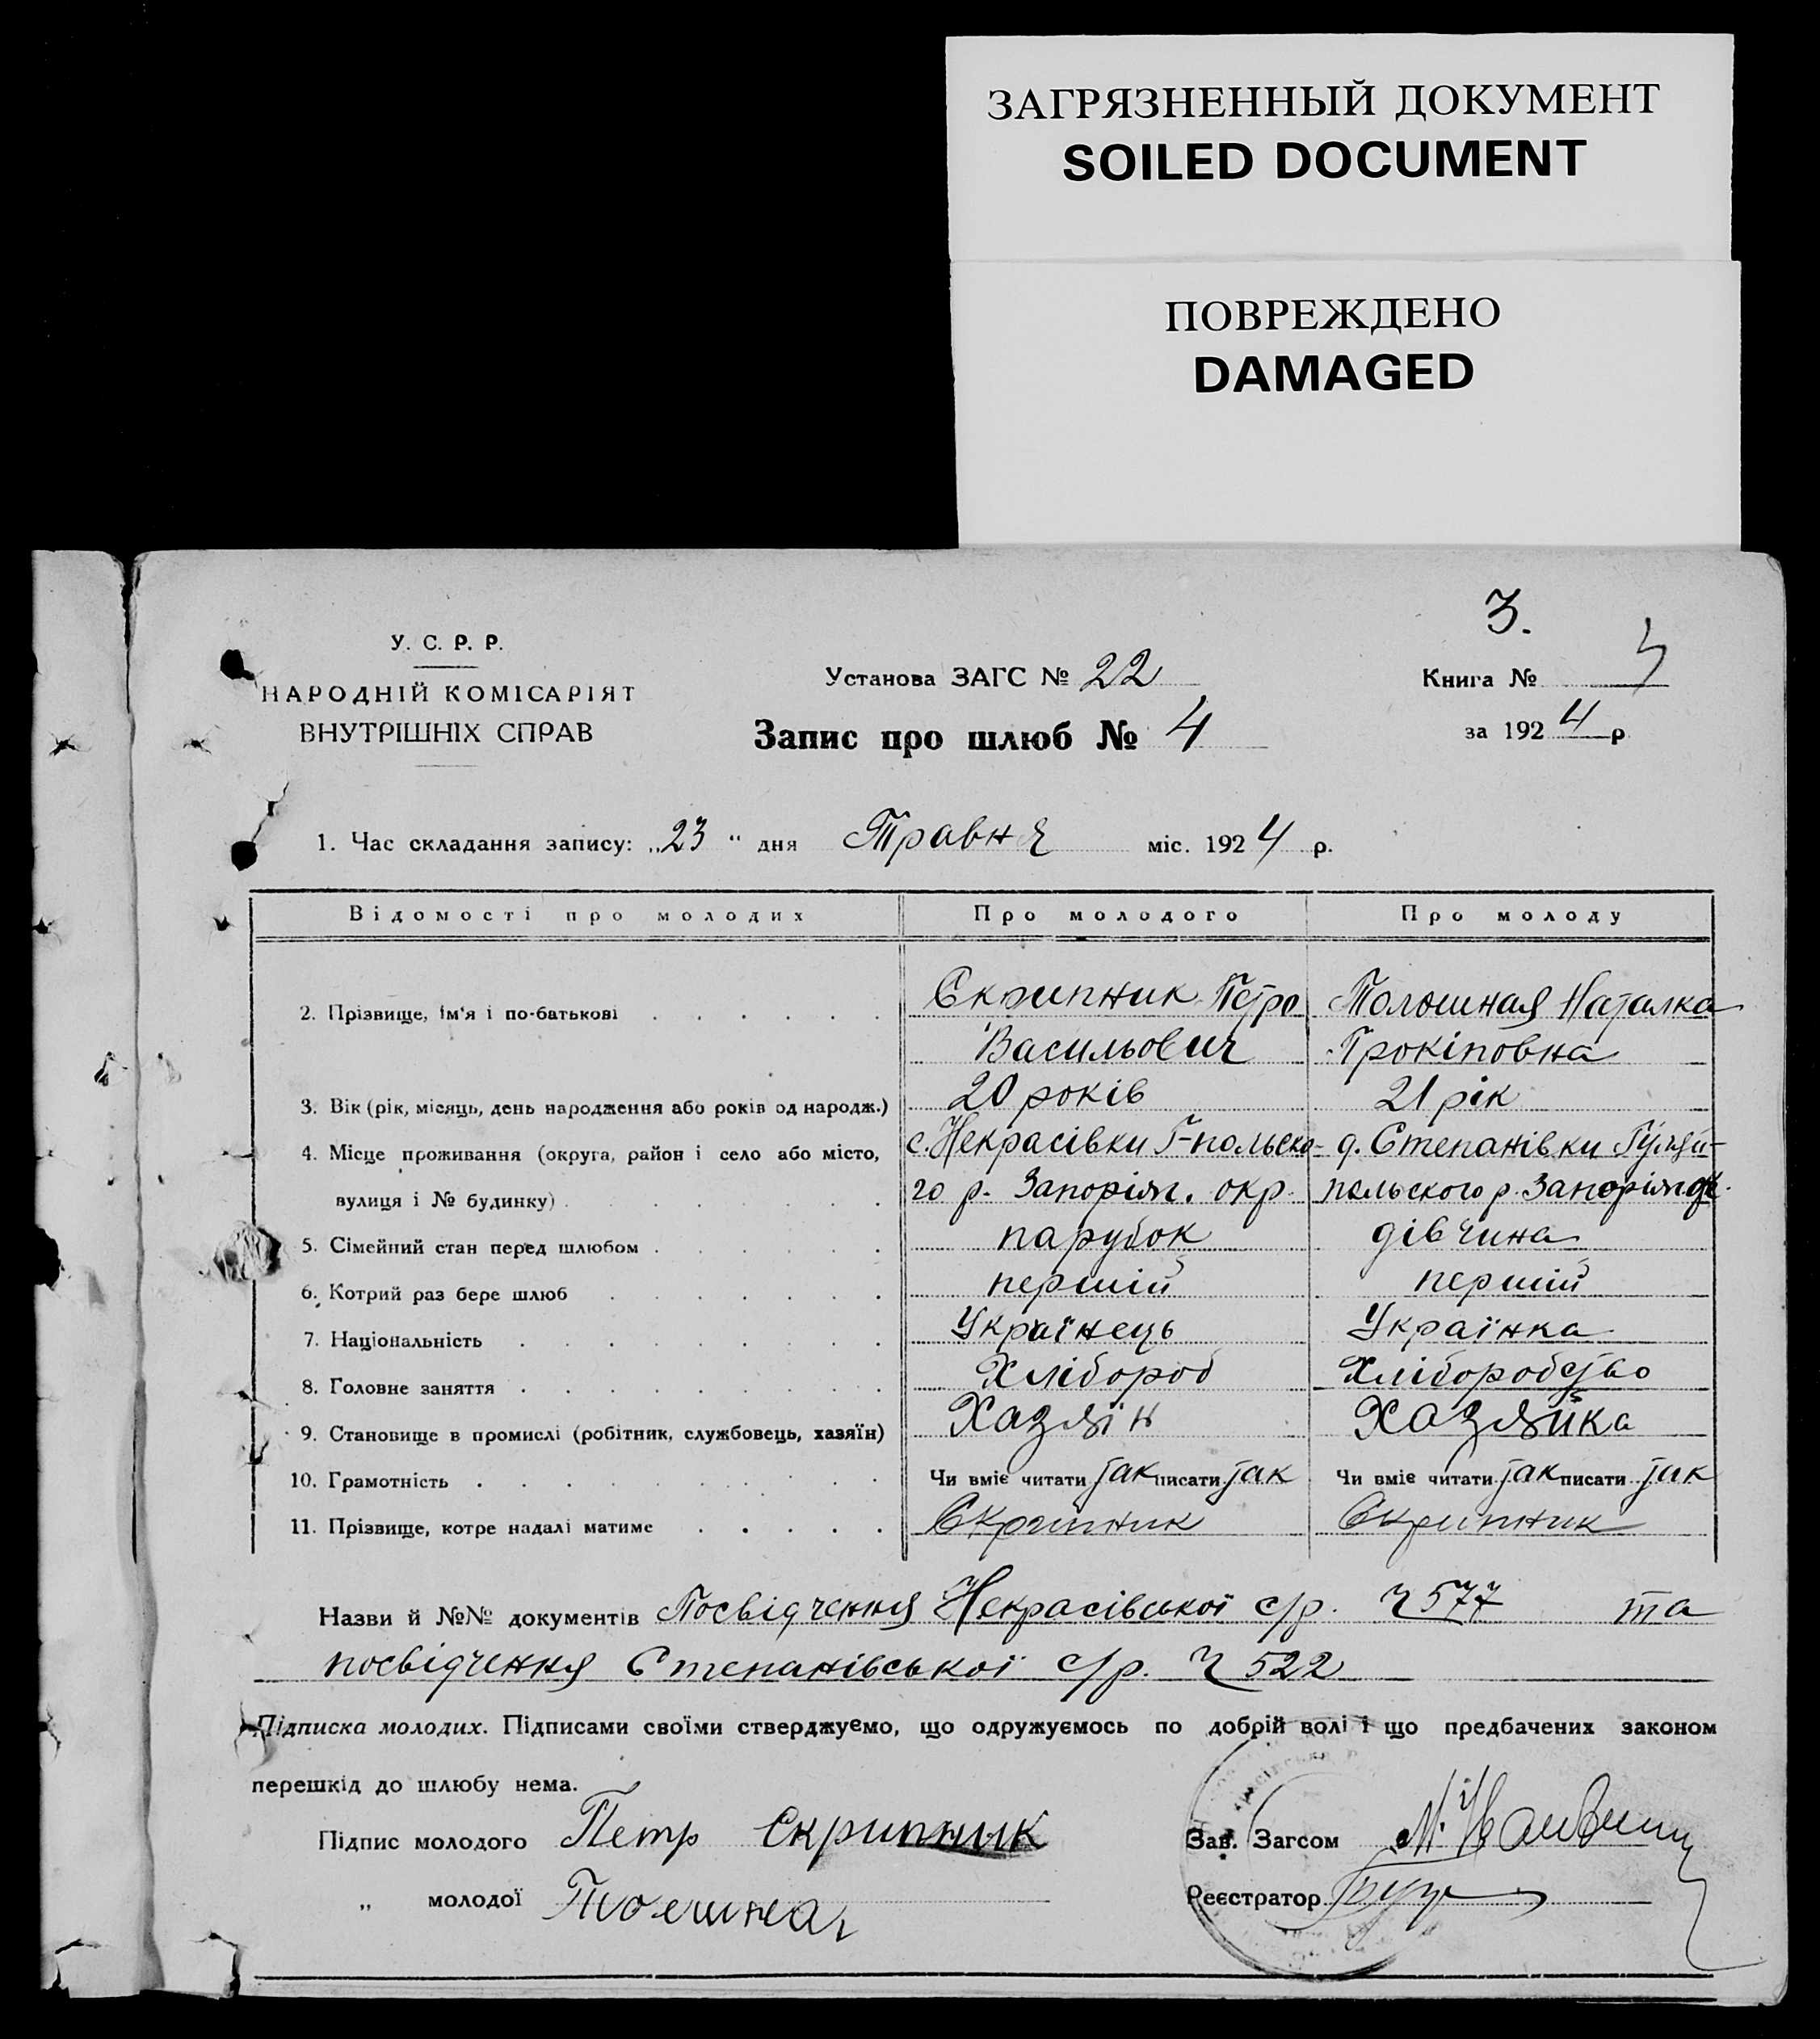 ЗАГРЯЗНЕННЫЙ ДОКУМЕНТ
SOILED DOCUMENT
ПОВРЕЖДЕНО
DAMAGED
3.
У. С. Р. Р.
НАРОДНІЙ КОМІСАРІЯТ
ВНУТРІШНІХ СПРАВ
Установа ЗАГС № 22
Запис про шлюб № 4
Книга №
за 1924 р
1. Час складання запису: „23 “ дня Травня міс. 1924 р.
Відомості про молодих Про молодого Про молоду
2. Прізвище, ім'я і по-батькові Скрипник Петро Толошная Наталка
Васильович Прокіповна
3. Вік (рік, місяць, день народження або років од народж.) 20 років 21 рік
4. Місце проживання (округа, район і село або місто, с. Некрасівки Г-польско- д. Степанівки Гуляй-
вулиця і № будинку) го р. Запоріж. окр. польского р. Запоріж. ок.
5. Сімейний стан перед шлюбом парубок дівчина
6. Котрий раз бере шлюб першій першій
7. Національність Українець Українка
8. Головне заняття Хлібороб Хліборобство
9. Становище в промислі (робітник, службовець, хазяїн) Хазяїн Хазяйка
10. Грамотність Чи вміє читати так писати так Чи вміє читати так писати так
11. Прізвище, котре надалі матиме Скрипник Скрипник
Назви й №№ документів Посвідчення Некрасівської с/р. Ч 577 та
посвідчення Степанівської с/р. Ч 522
Підписка молодих. Підписами своїми стверджуємо, що одружуємось по добрій волі і що предбачених законом
перешкід до шлюбу нема.
Підпис молодого Петр Скрипник
Зав. Загсом
„ молодої
Реєстратор